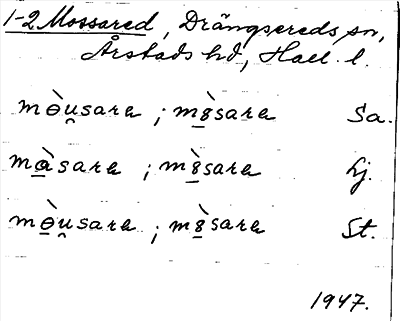 1-2 Mossared, Drängsereds sn,
Årstads hd, Hall. l.
mɵ̀u̯sara ; mȣ̠̀sara Sa.
mɑ̠̀sara ; mȣ̠̀sara Lj.
mɵ̠̀u̯sara ; mȣ̠̀sara St.
1947.